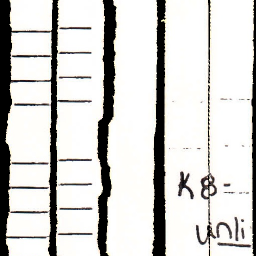 K8-
unli